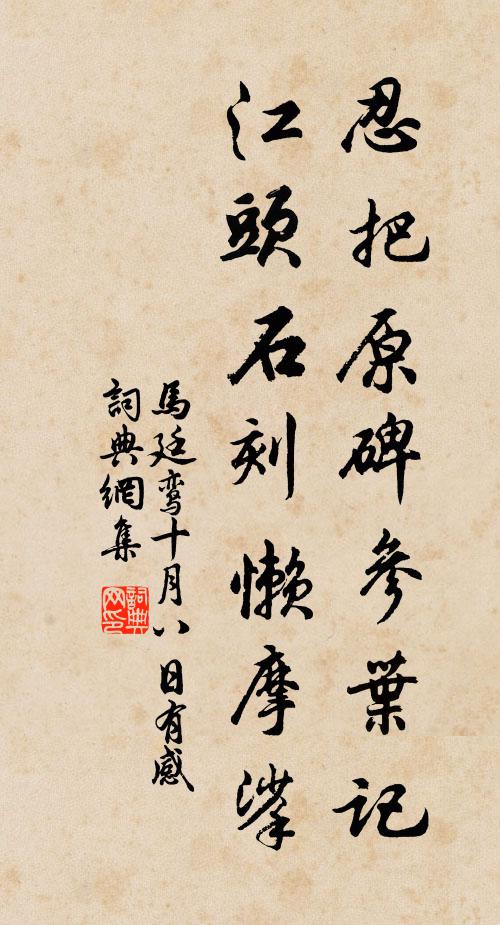 忍把原碑參葉記
江頭石刻懶摩挲
馬廷鸞十月八日有感
詞典網集
詞典网印